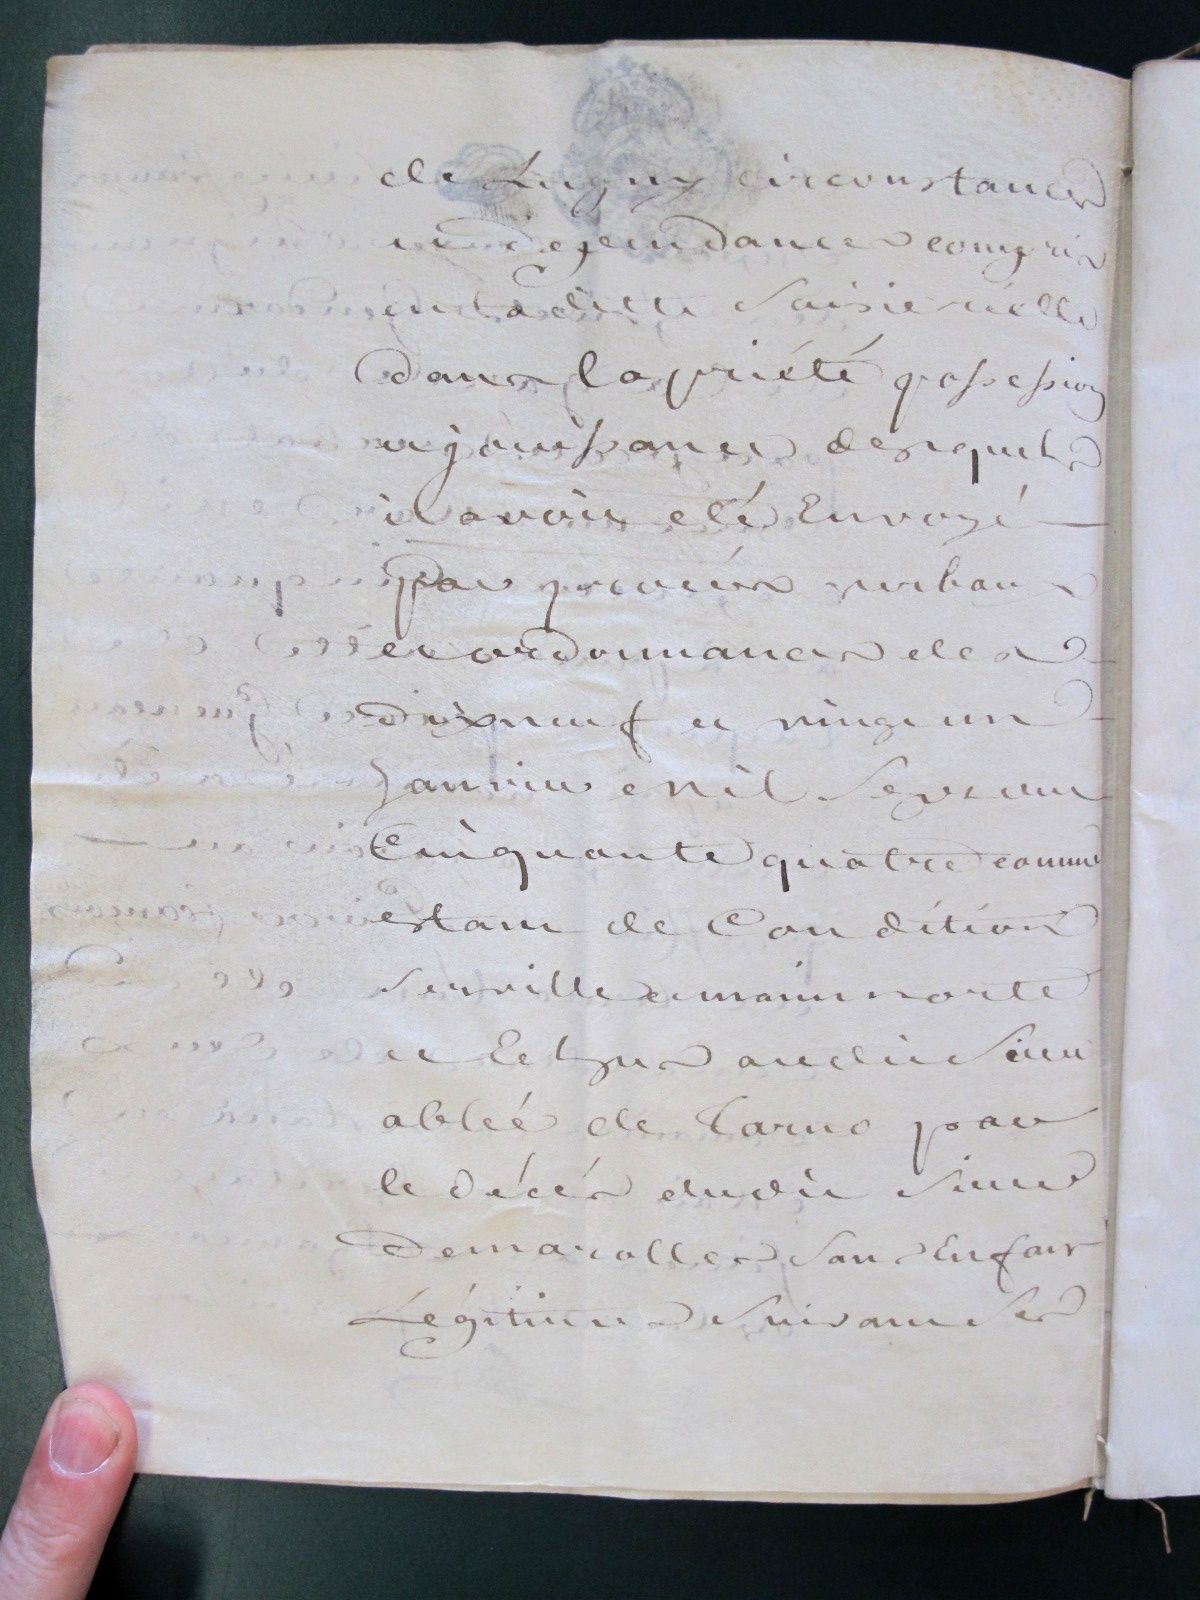 de Lugny circonstances
et dependances compris
en la ditte Saisie réelle
dans la priété possession
et jouissance desquels
il avoit eté Envoyé
par procés verbaux
et ordonnances des
dixneuf et vingt un
Janvier mil Sept cent
Cinquante quatre comme
estant de Condition
serville et mainmorte
et Echus audit Sieur
abbé de Tarno par
le décés dudit Sieur
Demarolles Sans Enfans
Légitimes Suivant Ses